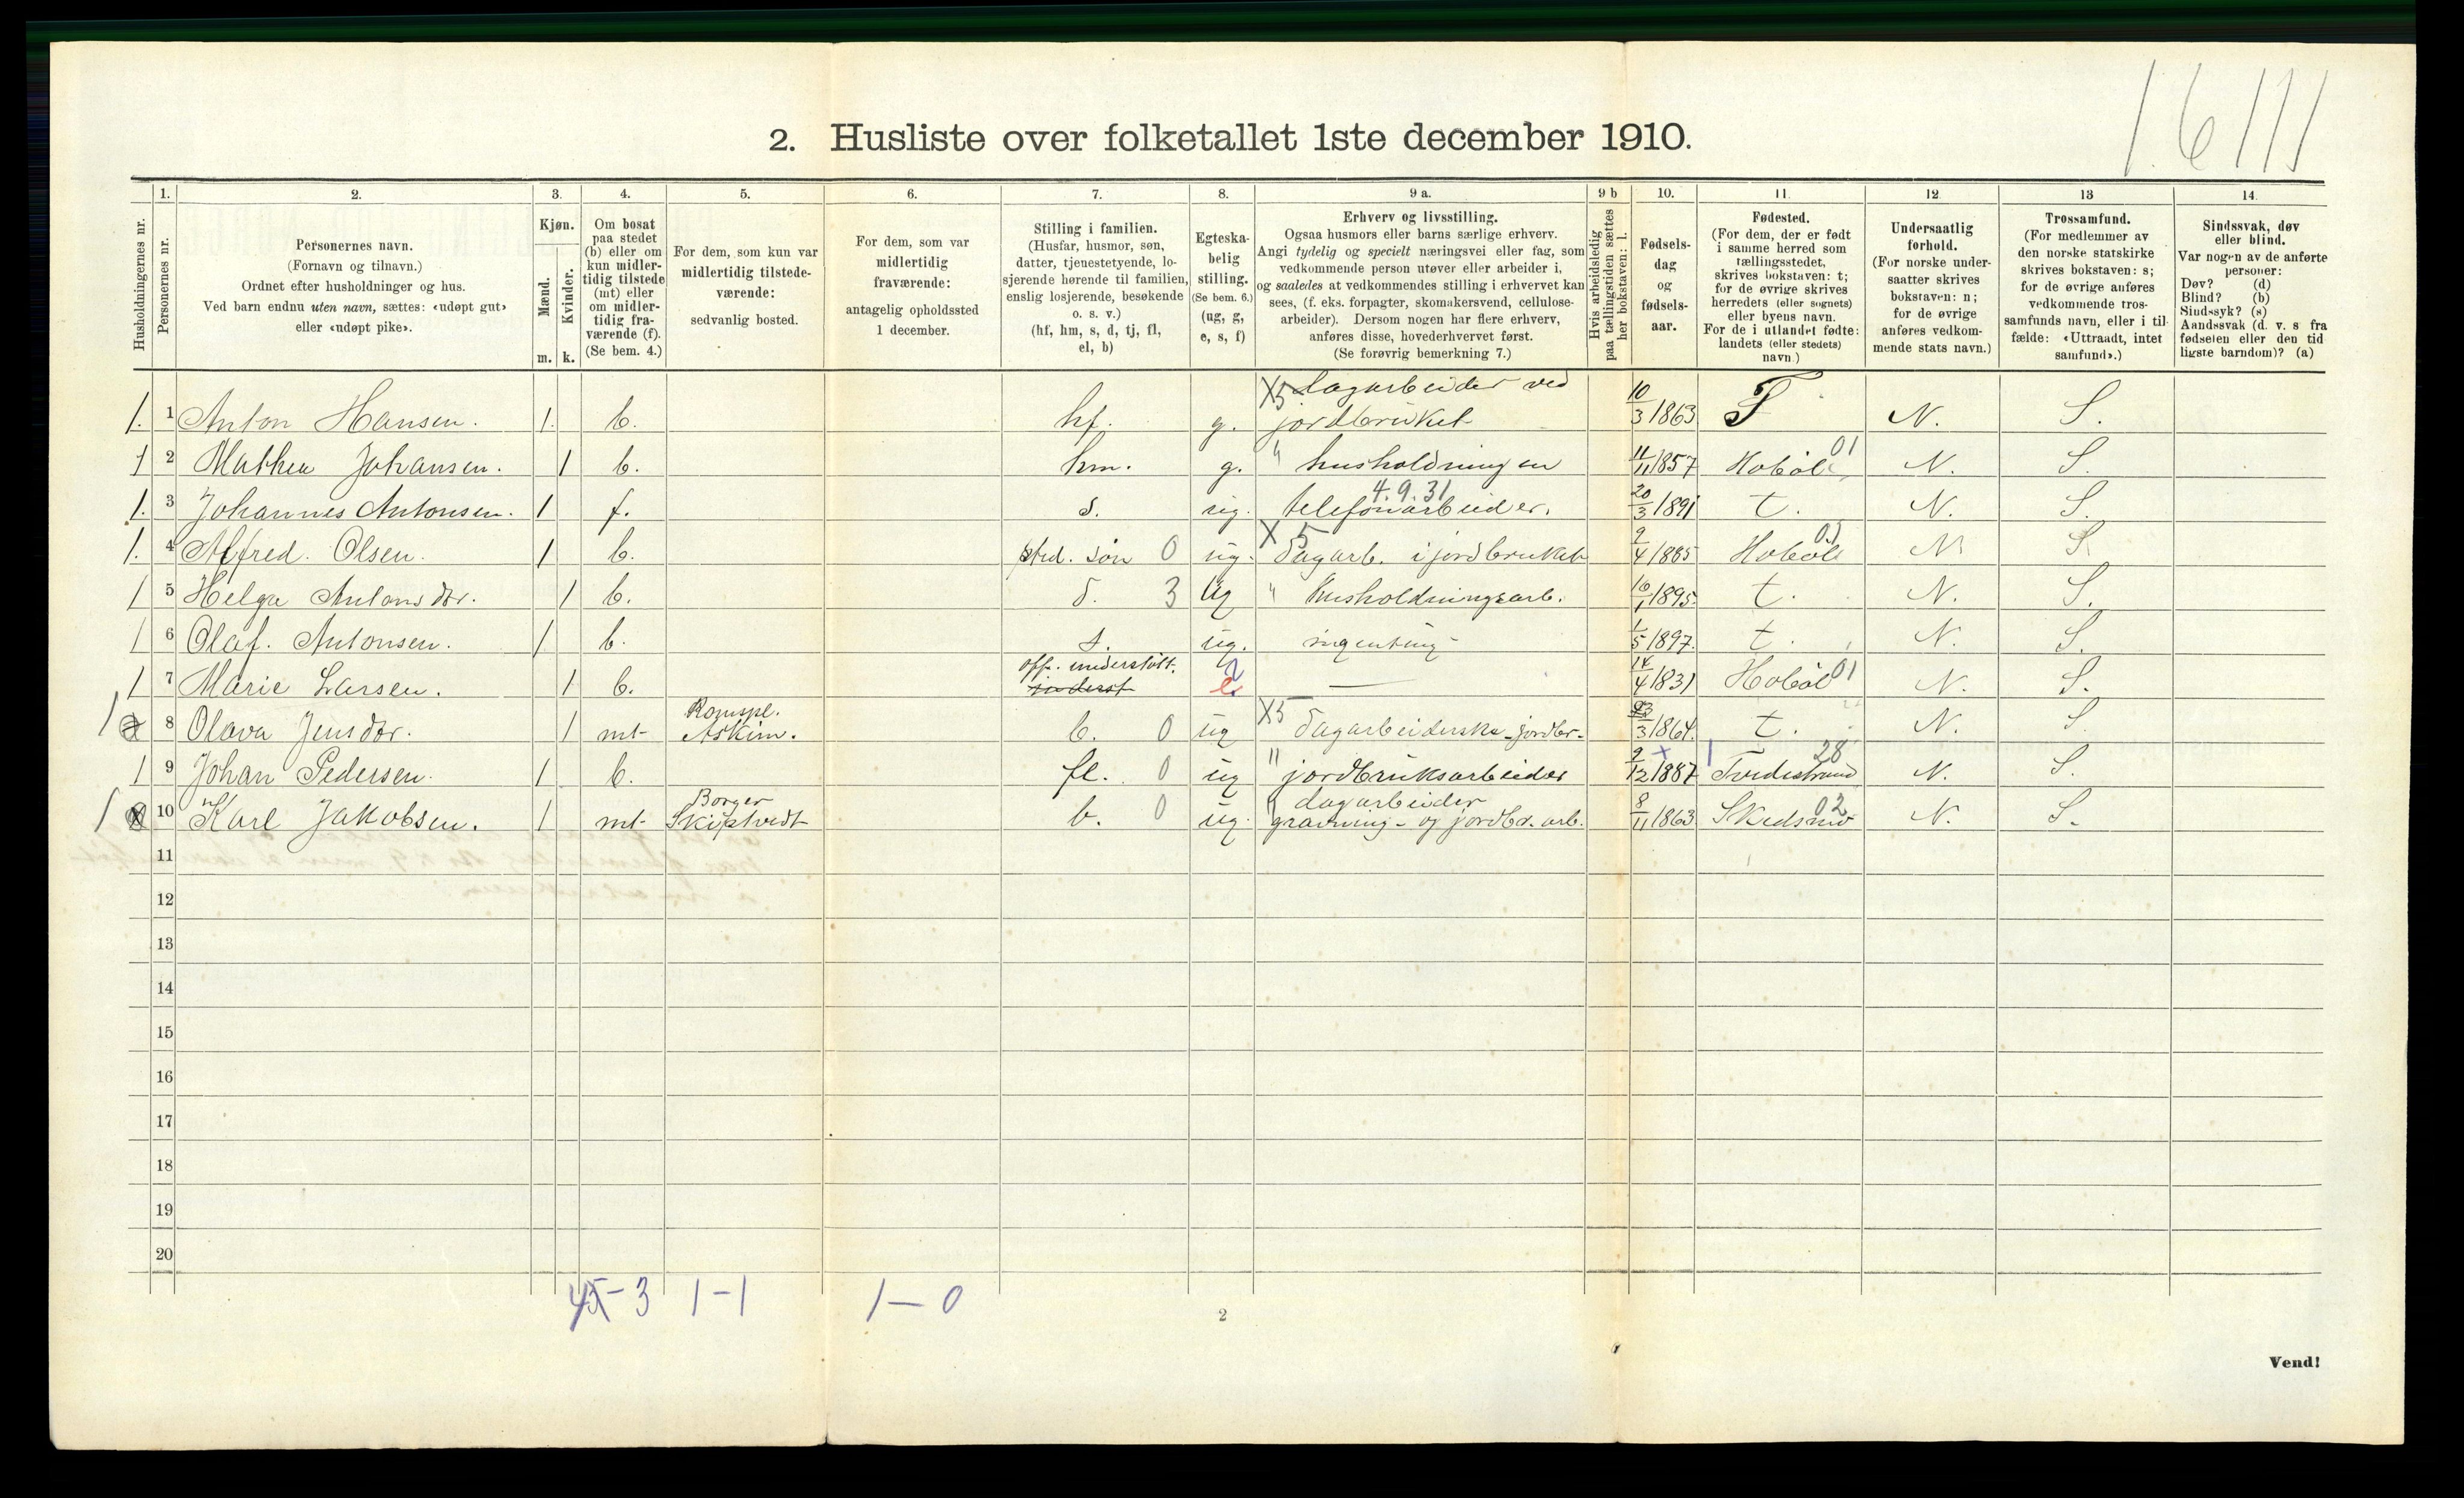 1 6 111
2. Husliste over folketallet 1ste december 1910.
Husholdningernes nr.
1. Personernes nr.
2. Personernes navn.
(Fornavn og tilnavn.)
Ordnet efter husholdninger og hus.
Ved barn endnu uten navn, sættes: «udøpt gut»
eller «udøpt pike».
3. Kjøn.
Mænd. m.
Kvinder. k.
4. Om bosat
paa stedet
(b) eller om
kun midler-
tidig tilstede
(mt) eller
om midler-
tidig fra-
værende (f).
(Se bem. 4.)
5. For dem, som kun var
midlertidig tilstede-
værende:
sedvanlig bosted.
6. For dem, som var
midlertidig
fraværende:
antagelig opholdssted
1 december.
7. Stilling i familien.
(Husfar, husmor, søn,
datter, tjenestetyende, lo-
sjerende hørende til familien,
enslig losjerende, besøkende
o. s. v.)
(hf, hm, s, d, tj, fl,
el, b)
8. Egteska-
belig
stilling.
(Se bem. 6.)
(ug, g,
e, s, f)
9 a. Erhverv og livsstilling.
Ogsaa husmors eller barns særlige erhverv.
Angi tydelig og specielt næringsvei eller fag, som
vedkommende person utøver eller arbeider i,
og saaledes at vedkommendes stilling i erhvervet kan
sees, (f. eks. forpagter, skomakersvend, cellulose-
arbeider). Dersom nogen har flere erhverv,
anføres disse, hovederhvervet først.
(Se forøvrig bemerkning 7.)
9 b Hvis arbeidsledig
paa tællingstiden sættes
her bokstaven: l.
10. Fødsels-
dag
og
fødsels-
aar.
11. Fødested.
(For dem, der er født
i samme herred som
tællingsstedet,
skrives bokstaven: t;
for de øvrige skrives
herredets (eller sognets)
eller byens navn.
For de i utlandet fødte:
landets (eller stedets)
navn.)
12. Undersaatlig
forhold.
(For norske under-
saatter skrives
bokstaven: n;
for de øvrige
anføres vedkom-
mende stats navn.)
13 Trossamfund.
(For medlemmer av
den norske statskirke
skrives bokstaven: s;
for de øvrige anføres
vedkommende tros-
samfunds navn, eller i til-
fælde: «Uttraadt, intet
samfund».)
14. Sindssvak, døv
eller blind.
Var nogen av de anførte
personer:
Døv? (d)
Blind? (b)
Sindssyk? (s)
Aandssvak (d. v. s fra
fødselen eller den tid
ligste barndom)? (a)
1. 1 Anton Hansen. 1. b. hf. g. X5 Dagarbeider ved jordbruket 10/3 1863 T N. S.
1 2 Mathea Johansen. 1 b. hm. g. " husholdningen 11/11 1857 Hobøl 01 N. S.
1. 3 Johannes Antonsen. 1 f. s. ug. 4.9.31 telefonarbeider. 20/3 1891 t. N. S.
1. 4 Alfred. Olsen. 1 b. sted. søn 0 ug. X 5 Dagarb. i jordbruket 9/4 1885 Hobøl 01 N S
1 5 Helga Antonsdtr. 1 b. d. 3 ug " husholdningsarb. 16/1 1895. t. N. S.
1 6 Olaf. Antonsen. 1 b. s. ug. ingenting - 1/5 1897. t. N. S.
1 7 Marie Larsen. 1 b. off. understøtt. e. — 14/4 1831 Hobøl 01 N. S.
1 8 Olava Jensdtr. 1 mt Romspl. Askim. b. 0 ug X5 Dagarbeiderske - jordbr- /3 1864. t. N. S.
1 9 Johan Pedersen. 1 b. fl. 0 ug " jordbruksarbeider 9/12 1887 + 1 Tvedestrand 28 N. S.
1 10 Karl Jakobsen. 1 mt Borger Skiptvedt b. 0 ug. " dagarbeider gravning- og jordbr. arb. 8/11 1863 Skedsmo 02 N. S.
11
12
13
14
15
16
17
18
19
20
4 - 3 1-1 1-0
2
Vend!